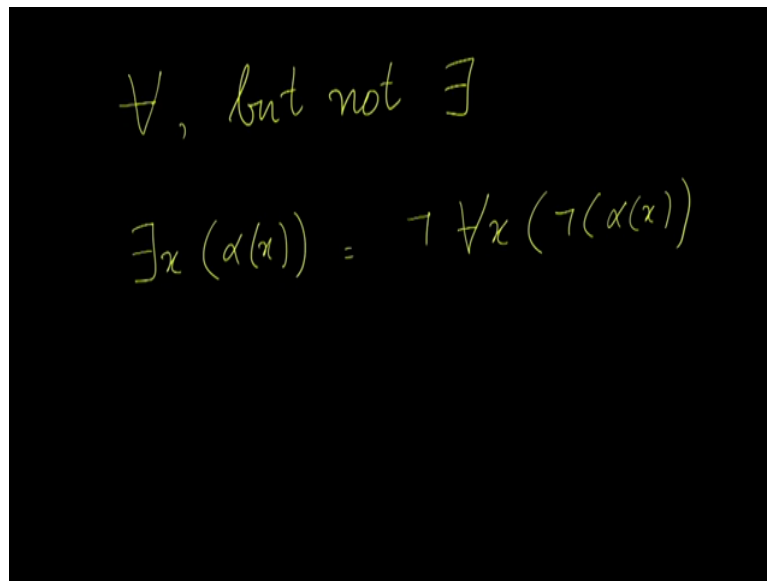 ∀, but not ∃
∃x (α(x)) = ¬ ∀x (¬(α(x))